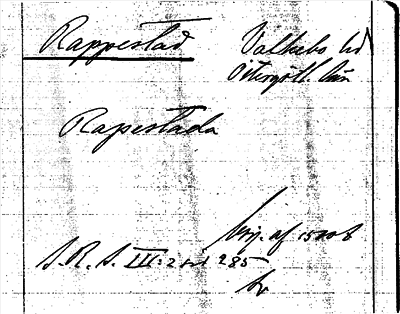 Rappestad Valkebo hd
Östergötl. län
Rapestada
af 1500
S.R.S. III: 2 sid 285